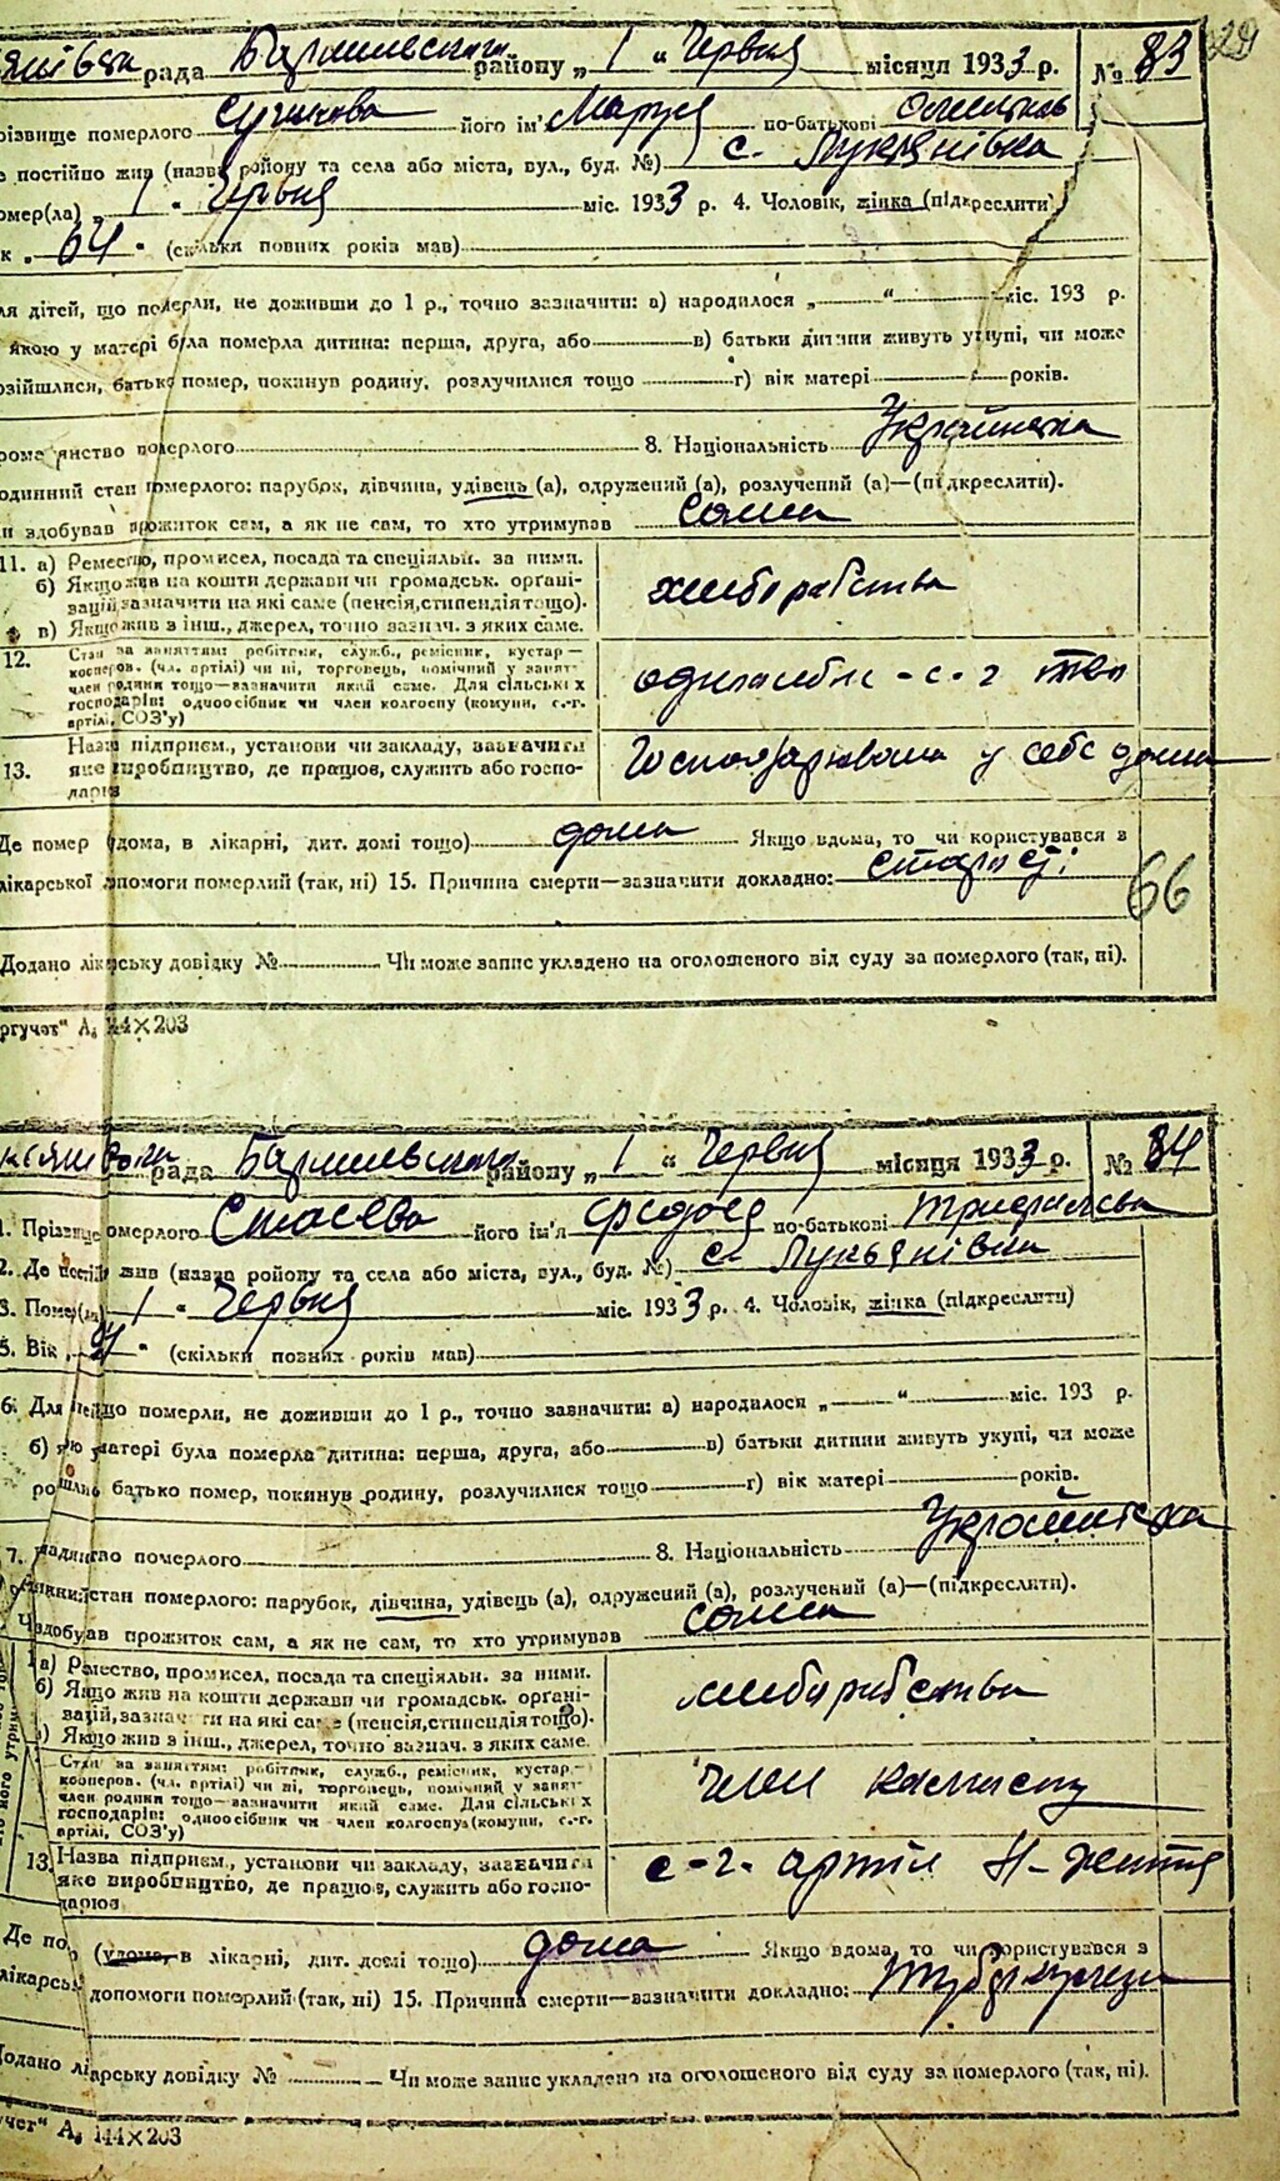 29
рада Баришевського району „ 1 “ Червня місяця 1933 р. № 83
різвище померлого його ім'я Маруся по-батькові
е постійно жив (назва району та села або міста, вул., буд. №) с. Лукянівка
омер(ла) „ 1 “ Червня міс. 1933 р. 4. Чоловік, жінка (підкреслити)
к „ 64 “ (скільки повних років мав)
ля дітей, що померли, не доживши до 1 р., точно зазначити: а) народилося „ “ міс. 193 р.
якою у матері була померла дитина: перша, друга, або в) батьки дитини живуть укупі, чи може
озійшлися, батько помер, покинув родину, розлучилися тощо г) вік матері років.
ромадянство померлого 8. Національність Українка
одинний стан померлого: парубок, дівчина, удівець (а), одружений (а), розлучений (а)—(підкреслити).
и здобував прожиток сам, а як не сам, то хто утримував сама
11. а) Ремество, промисел, посада та спеціяльн. за ними.
б) Якщо жив на кошти держави чи громадськ. органі-
зацій, зазначити на які саме (пенсія, стипендія тощо).
в) Якщо жив з інш., джерел, точно зазнач. з яких саме.
хліборобство
12. Стан за заняттям: робітник, служб., ремісник, кустар—
коопер­ов. (чл. артілі) чи ні, торговець, помічний у занят­
член родини тощо—зазначити який саме. Для сільськіх
господарів: одноосібник чи член колгоспу (комуни, с.-г.
артілі, СОЗ'у)
13. Назва підприєм., установи чи закладу, зазначити
яке виробництво, де працюв, служить або госпо-
дарив
Господарювала у себе дома
Де помер (удома, в лікарні, дит. домі тощо) дома Якщо вдома, то чи користувався з
лікарської допомоги померлий (так, ні) 15. Причина смерти—зазначити докладно: старості
66
Додано лікарську довідку № Чи може запис укладено на оголошеного від суду за померлого (так, ні).
ргучет“ А₆ 144×203
рада Баришевського району „ 1 “ Червня місяця 1933 р. № 84
1. Прізвище померлого Стасева його ім'я Федося по-батькові
2. Де постійно жив (назва району та села або міста, вул., буд. №) с. Лукьянівка
3. Помер(ла) 1 “ Червня міс. 1933 р. 4. Чоловік, жінка (підкреслити)
5. Вік „ “ (скільки повних років мав)
6. Для дітей, що померли, не доживши до 1 р., точно зазначити: а) народилося „ “ міс. 193 р.
б) якою у матері була померла дитина: перша, друга, або в) батьки дитини живуть укупі, чи може
розійшлись, батько помер, покинув родину, розлучилися тощо г) вік матері років.
7. Громадянство померлого 8. Національність Українка
стан померлого: парубок, дівчина, удівець (а), одружений (а), розлучений (а)—(підкреслити).
Чи здобував прожиток сам, а як не сам, то хто утримував сама
а) Ремество, промисел, посада та спеціяльн. за ними.
б) Якщо жив на кошти держави чи громадськ. органі-
зацій, зазначити на які саме (пенсія, стипендія тощо).
в) Якщо жив з інш., джерел, точно зазнач. з яких саме.
хліборобства
Стан за заняттям: робітник, служб., ремісник, кустар—
кооперов. (чл. артілі) чи ні, торговець, помічний у занят­
член родини тощо—зазначити який саме. Для сільськіх
господарів: одноосібник чи член колгоспу (комуни, с.-г.
артілі, СОЗ'у)
член колгоспу
13. Назва підприєм., установи чи закладу, зазначити
яке виробництво, де працюв, служить або госпо-
дарюв
с-г. артіл Н-життя
Де пом (удома, в лікарні, дит. домі тощо) дома Якщо вдома, то чи користувався з
лікарськ допомоги померлий (так, ні) 15. Причина смерти—зазначити докладно: туберкульози
Додано лікарську довідку № Чи може запис укладено на оголошеного від суду за померлого (так, ні).
учет“ А₆ 144×203